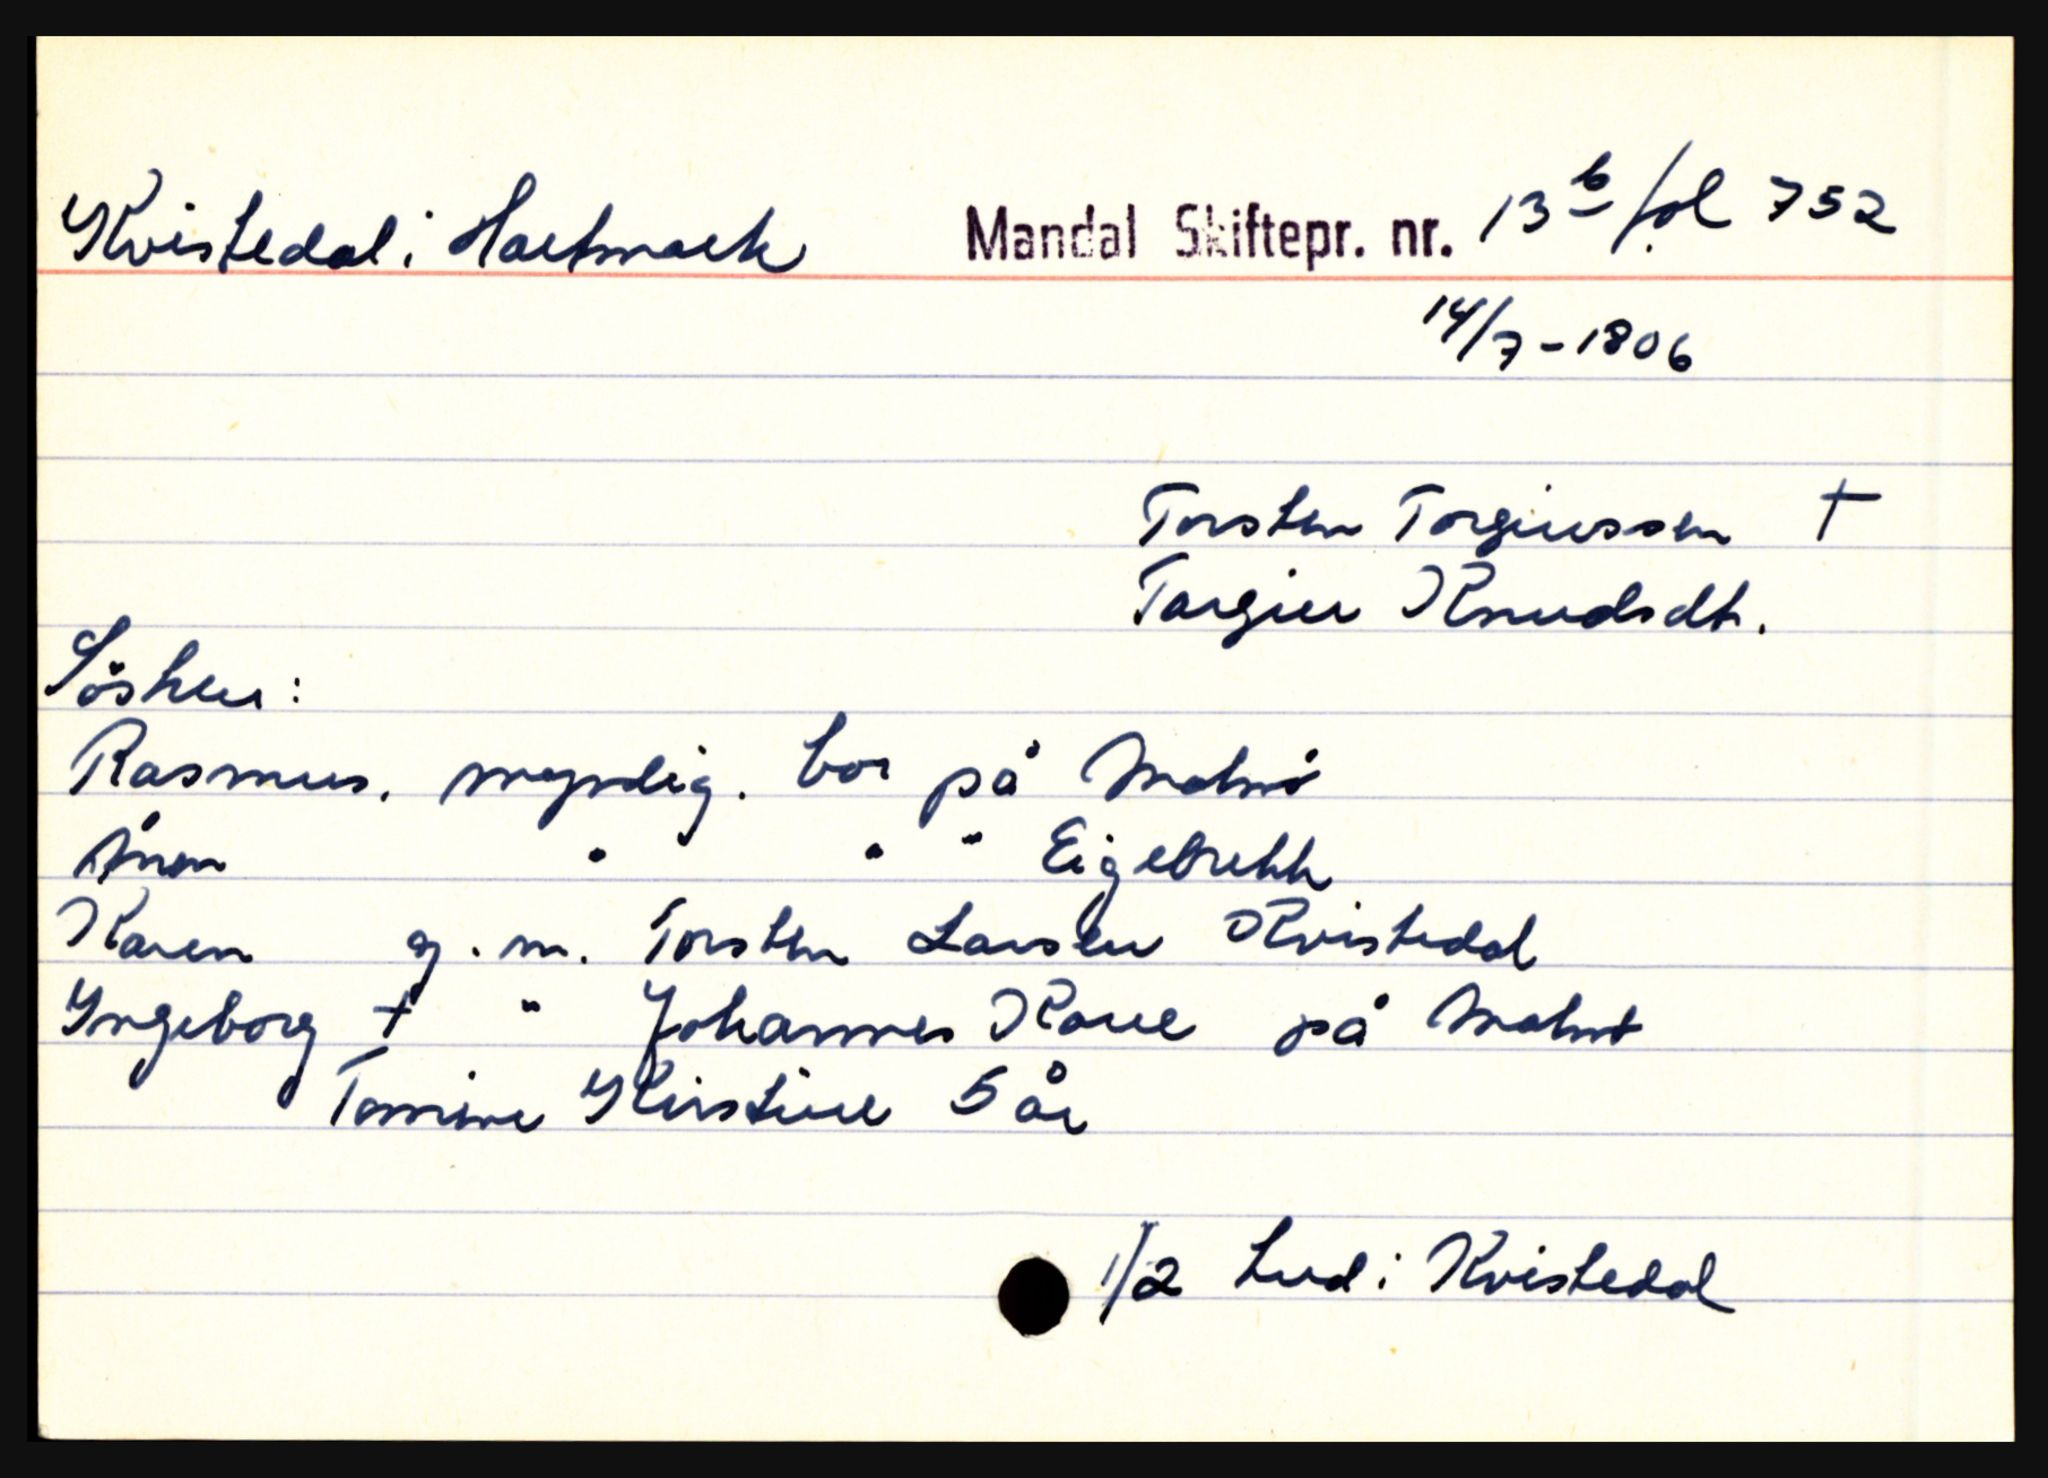 Kvistedal i Hartmark Mandal Skiftepr. nr. 13 b fol 752
14/7-1806
Torsten Torgiussen †
Torgier Knudsdt.
Søsken:
Rasmus. myndig. bor på Malmø
Ånen " " " Eigebrekk
Karen g. m. Torsten Larsen Kvistedal
Yngeborg † " Johannes Kaue på Malmø
Tomine Kirstine 5 år
1/2 hud i Kvistedal